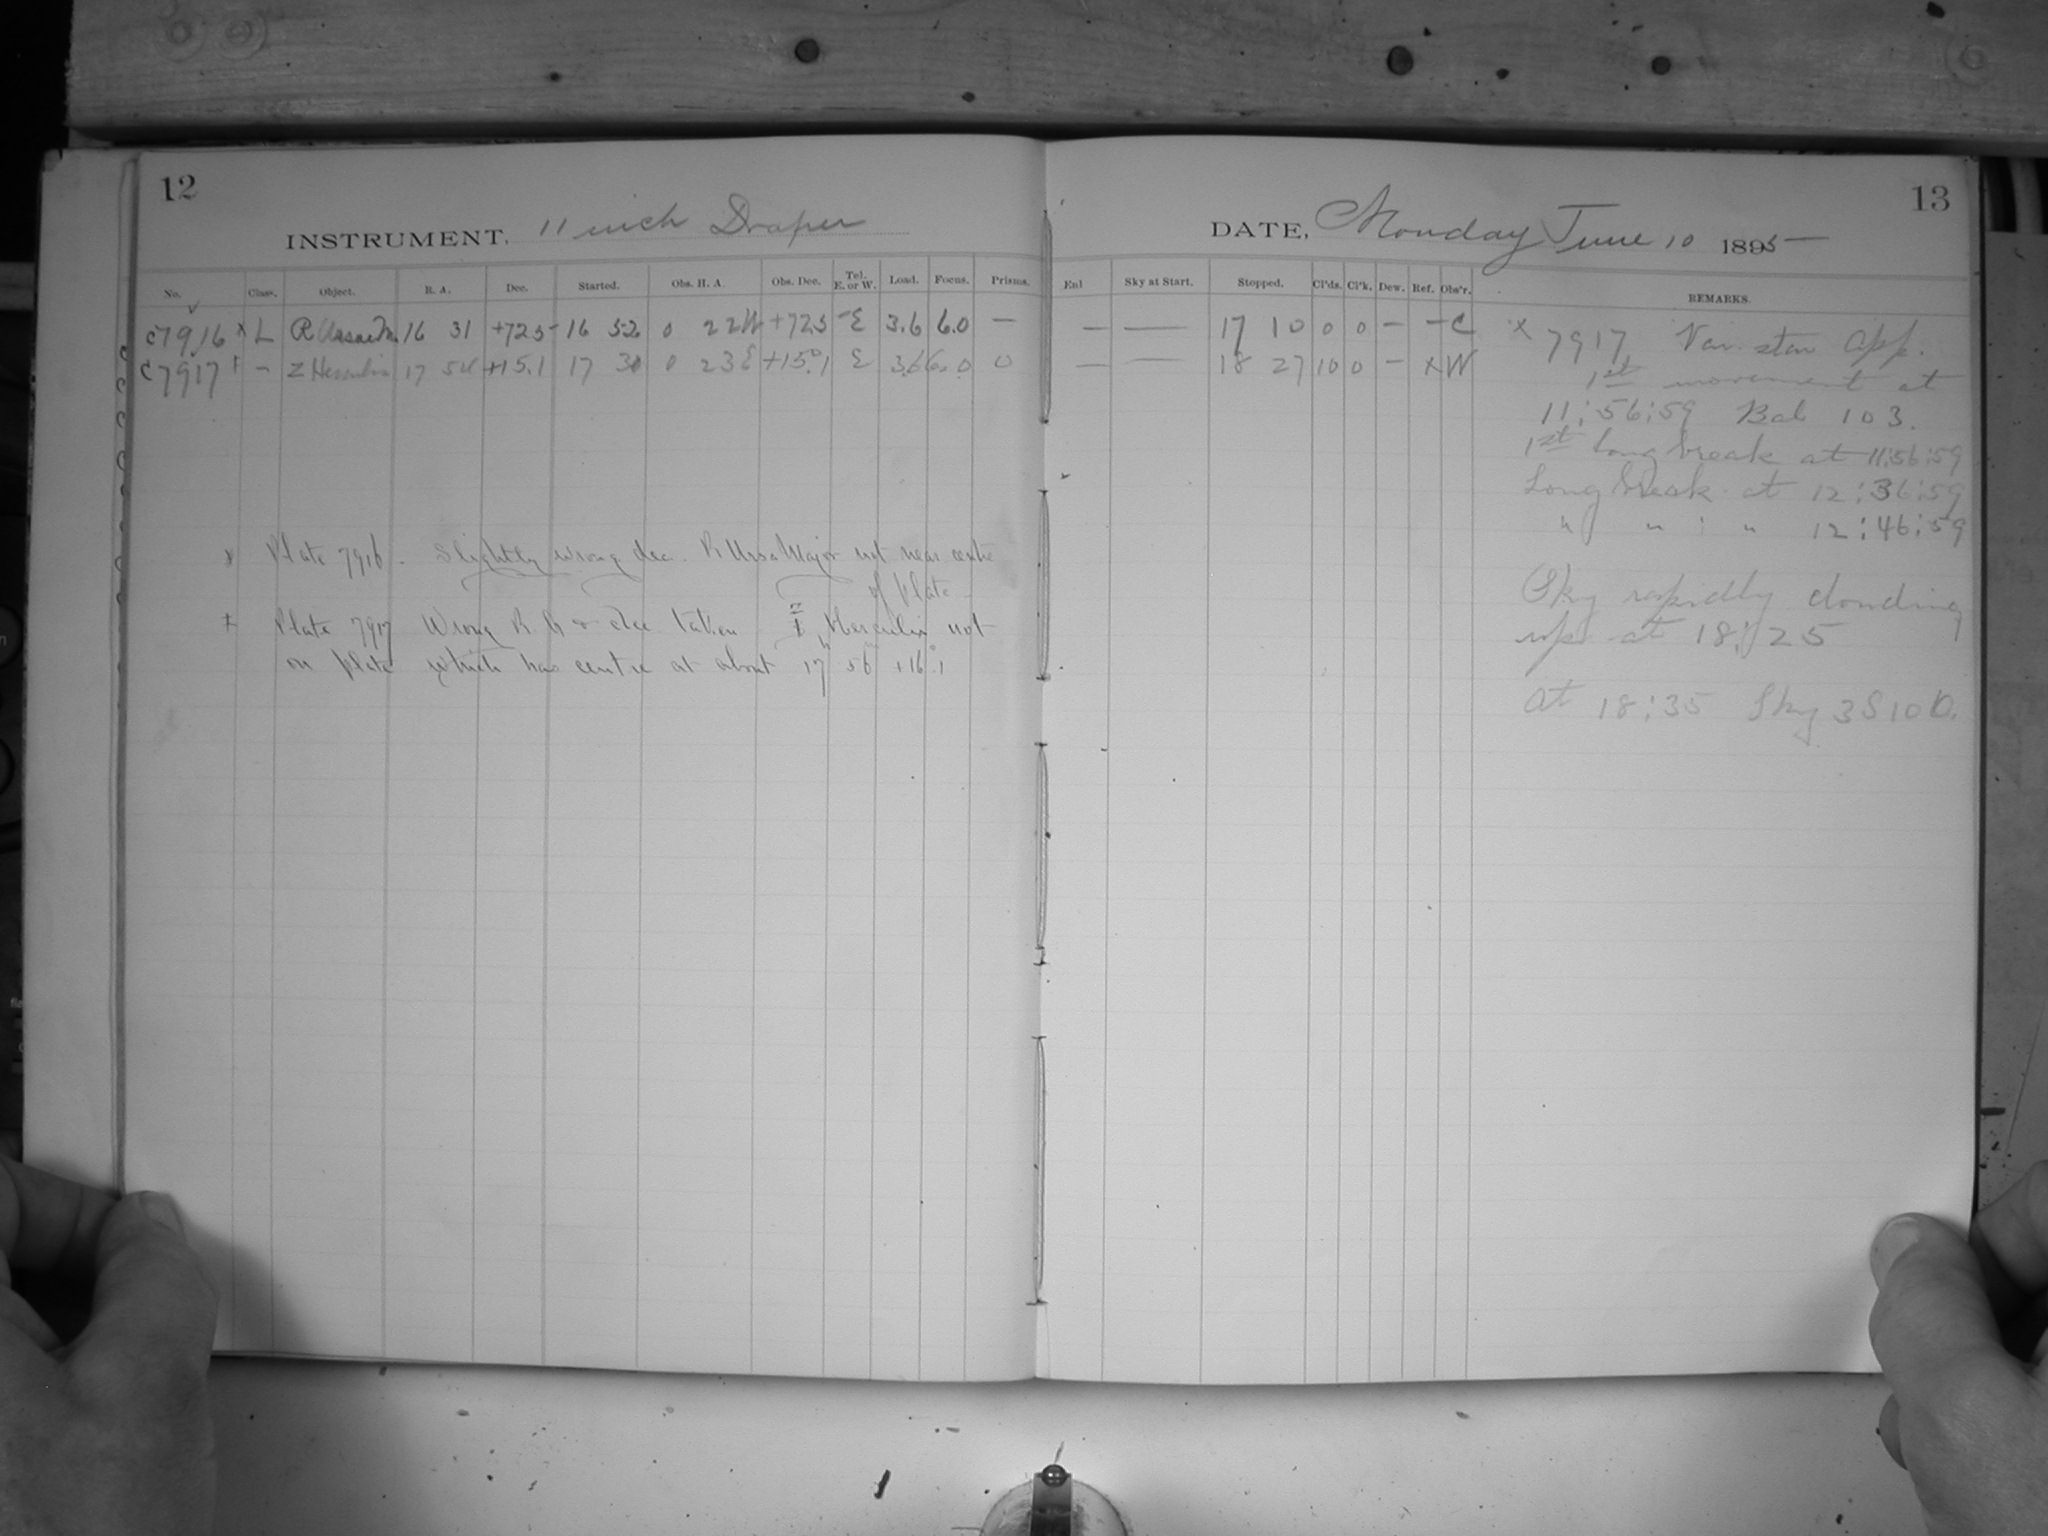 12
INSTRUMENT, 11 inch Draper
No. Class. Object. R. A. Dec. Started. Obs. H. A. Obs. Dec. Tel. E. or W. Load. Focus. Prisms.
C7916 x L R Ursae M. 16 31 +72.5 16 52 0 22W +72.5 E 3.6 6.0 —
C7917 ‡ " Z Herculis 17 54 +15.1 17 30 0 23E +15°.1 E 3.6 6.0 0
x Plate 7916. Slightly wrong dec. R Ursa Major not near centre
of plate
‡ Plate 7917 Wrong R. A. & dec. taken Z Herculis not
on plate which has centre at about 17h 56m +16°.1
13
DATE, Monday June 10 1895
Enl Sky at Start. Stopped. Cl'ds. Cl'k. Dew. Ref. Obs'r. REMARKS.
— — 17 10 0 0 — — C
— — 18 27 10 0 — x W
x 7917 Var. star App.
1st movement at
11:56:59 Bal 103.
1st Long break at 11:56:59
Long break at 12:36:59
" " : " 12:46:59
Sky rapidly clouding
up at 18:25
At 18:35 Sky 3S10D.